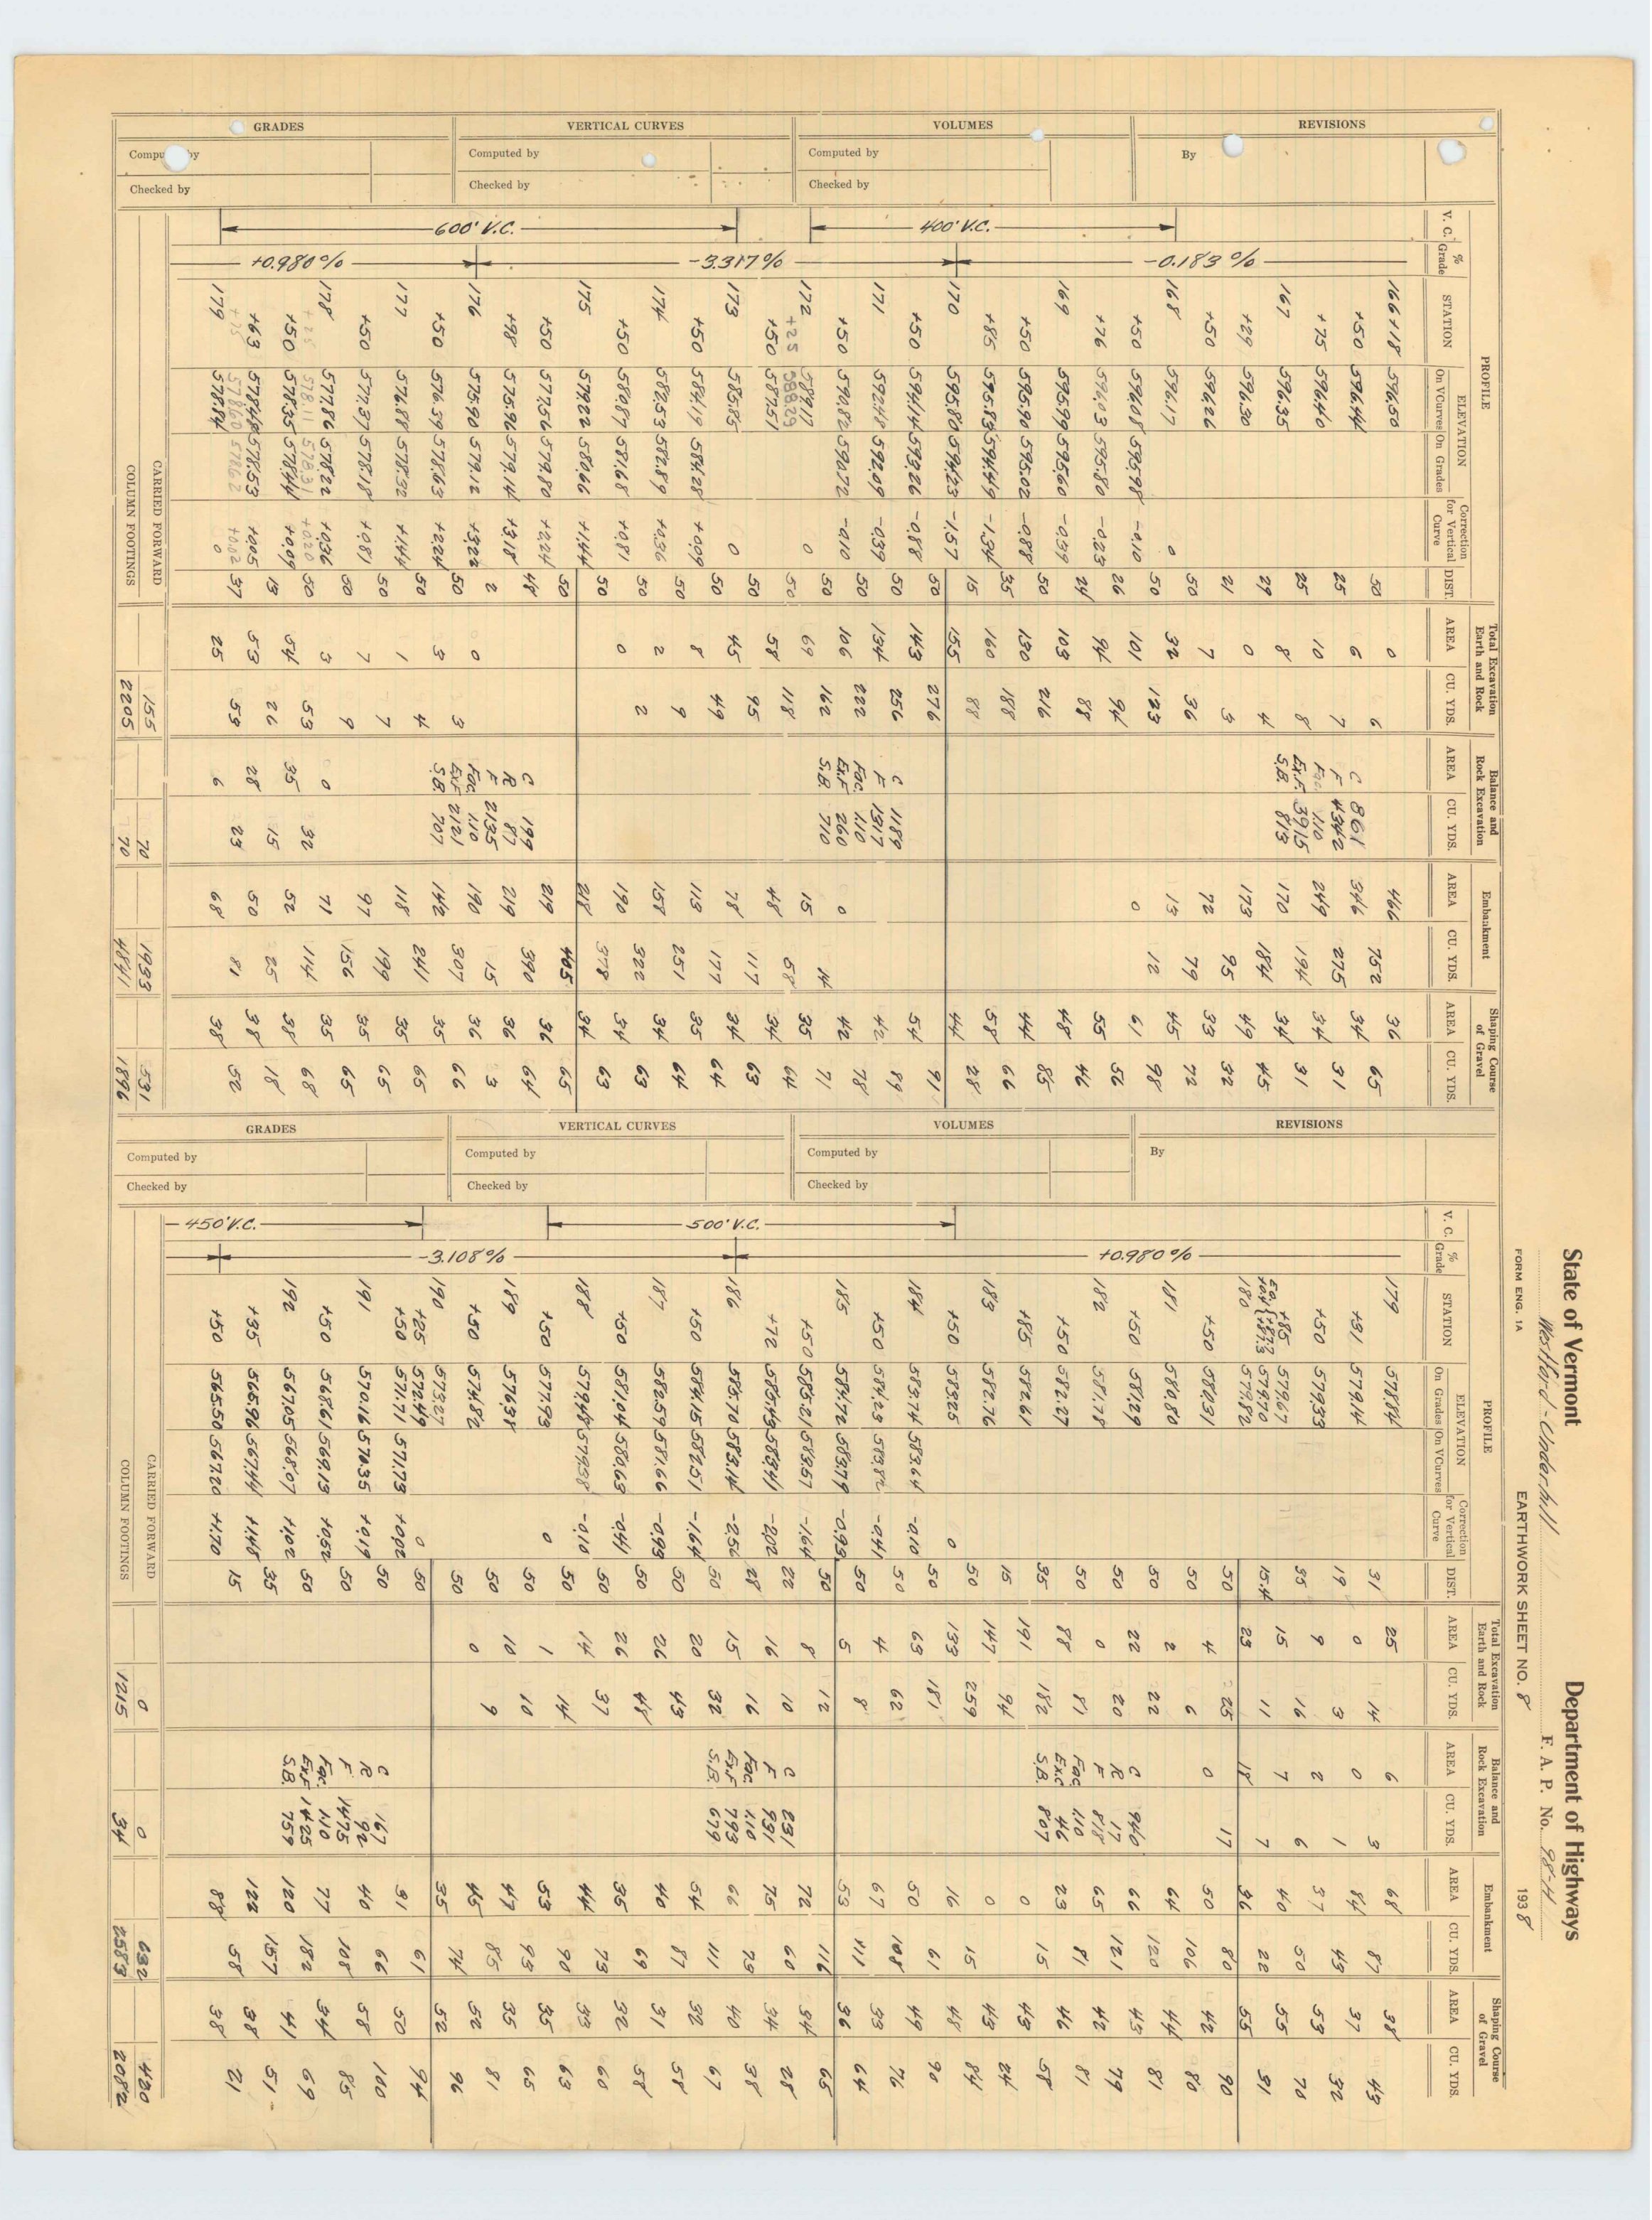 State of Vermont Department of Highways
Westford-Underhill F. A. P. No. 98-H
FORM ENG. 1A EARTHWORK SHEET NO. 8 1938
REVISIONS
By
VOLUMES
Computed by
Checked by
VERTICAL CURVES
Computed by
Checked by
GRADES
Computed by
Checked by
PROFILE Total Excavation Earth and Rock Balance and Rock Excavation Embankment Shaping Course of Gravel
V. C. % Grade STATION ELEVATION On V'Curves On Grades Correction for Vertical Curve DIST. AREA CU. YDS. AREA CU. YDS. AREA CU. YDS. AREA CU. YDS.
-0.183%
400' V.C.
-3.317%
600' V.C.
+0.980%
166+18 596.50 0 466 36
50 6 752 65
+50 596.44 6 C 861 346 34
25 7 F 4342 275 31
+75 596.40 10 Fac. 1.10 249 34
25 8 Ex.F. 3915 194 31
167 596.35 8 S.B. 813 170 34
29 4 184 45
+29 596.30 0 173 49
21 3 95 32
+50 596.26 7 72 33
50 36 79 72
168 596.17 0 32 13 45
50 123 12 98
+50 596.08 595.98 -0.10 101 0 61
26 94 56
+76 596.03 595.80 -0.23 94 55
24 88 46
169 595.99 595.60 -0.39 103 48
50 216 85
+50 595.90 595.02 -0.88 130 44
35 188 66
+85 595.83 594.49 -1.34 160 58
15 88 28
170 595.80 594.23 -1.57 155 44
50 276 91
+50 594.14 593.26 -0.88 143 54
50 256 C 1189 89
171 592.48 592.09 -0.39 134 F 1317 42
50 222 Fac. 1.10 78
+50 590.82 590.72 -0.10 106 Ex.F 260 0 42
50 162 S.B. 710 14 71
172 589.17 0 69 15 35
+25 588.29 50 118 58 64
+50 587.51 58 48 34
50 95 117 63
173 585.85 0 45 78 34
50 49 177 64
+50 584.19 584.28 +0.09 8 113 35
50 9 251 64
174 582.53 582.89 +0.36 2 158 34
50 2 322 63
+50 580.87 581.68 +0.81 0 190 34
50 378 63
175 579.22 580.66 +1.44 218 34
50 405 65
+50 577.56 579.80 +2.24 219 36
48 C 199 390 64
+98 575.96 579.14 +3.18 R 87 219 36
2 F 2135 15 3
176 575.90 579.12 +3.22 0 Fac. 1.10 190 36
50 3 Ex.F 2121 307 66
+50 576.39 578.63 +2.24 3 S.B. 707 142 35
50 4 241 65
177 576.88 578.32 +1.44 1 118 35
50 7 199 65
+50 577.37 578.18 +0.81 7 97 35
50 9 156 65
178 577.86 578.22 +0.36 3 0 71 35
+25 578.11 578.31 +0.20 50 53 32 114 68
+50 578.35 578.44 +0.09 54 35 52 38
13 26 15 25 18
+63 578.48 578.53 +0.05 53 28 50 38
+75 578.60 578.62 +0.02 37 59 23 81 52
179 578.84 0 25 6 68 38
CARRIED FORWARD 155 70 1933 531
COLUMN FOOTINGS 2205 70 4841 1896
REVISIONS
By
VOLUMES
Computed by
Checked by
VERTICAL CURVES
Computed by
Checked by
GRADES
Computed by
Checked by
PROFILE Total Excavation Earth and Rock Balance and Rock Excavation Embankment Shaping Course of Gravel
V. C. % Grade STATION ELEVATION On Grades On V'Curves Correction for Vertical Curve DIST. AREA CU. YDS. AREA CU. YDS. AREA CU. YDS. AREA CU. YDS.
+0.980%
500' V.C.
-3.108%
450' V.C.
179 578.84 25 6 68 38
31 14 3 87 43
+31 579.14 0 0 84 37
19 3 1 49 32
+50 579.33 9 2 37 53
35 16 6 50 70
+85 579.67 15 7 40 55
579.70 15.4 11 7 22 31
180 579.82 23 18 36 55
50 25 17 80 90
+50 580.31 4 0 50 42
50 6 106 80
181 580.80 2 64 44
50 22 120 81
+50 581.29 22 C 940 66 43
50 20 R 17 121 79
182 581.78 0 F 818 65 42
50 81 Fac. 1.10 81 81
+50 582.27 88 Ex.C 46 23 46
35 182 S.B. 807 15 58
+85 582.61 191 0 43
15 94 24
183 582.76 147 0 43
50 259 15 84
+50 583.25 0 133 16 48
50 181 61 90
184 583.74 583.64 -0.10 63 50 49
50 62 108 76
+50 584.23 583.82 -0.41 4 67 33
50 8 111 64
185 584.72 583.79 -0.93 5 53 36
50 12 116 65
+50 585.21 583.57 -1.64 8 C 231 72 34
22 10 F 931 60 28
+72 585.43 583.41 -2.02 16 Fac. 1.10 75 34
28 16 Ex.F 793 73 38
186 585.70 583.14 -2.56 15 S.B. 679 66 40
50 32 111 67
+50 584.15 582.51 -1.64 20 54 32
50 43 87 58
187 582.59 581.66 -0.93 26 40 31
50 48 69 58
+50 581.04 580.63 -0.41 26 35 32
50 37 73 60
188 579.48 579.38 -0.10 14 44 33
50 14 90 63
+50 577.93 0 1 53 35
50 10 93 65
189 576.37 10 47 35
50 9 85 81
+50 574.82 0 45 52
50 74 96
190 573.27 35 52
+25 572.49 0 50 61 94
+50 571.71 571.73 +0.02 C 167 31 50
50 R 92 66 100
191 570.16 570.35 +0.19 F 1475 40 58
50 Fac. 1.10 108 85
+50 568.61 569.13 +0.52 77 34
50 Ex.F 1425 182 69
192 567.05 568.07 +1.02 S.B. 759 120 41
35 157 51
+35 565.96 567.44 +1.48 122 38
15 58 21
+50 565.50 567.20 +1.70 88 38
CARRIED FORWARD 0 0 632 420
COLUMN FOOTINGS 1215 34 2583 2082